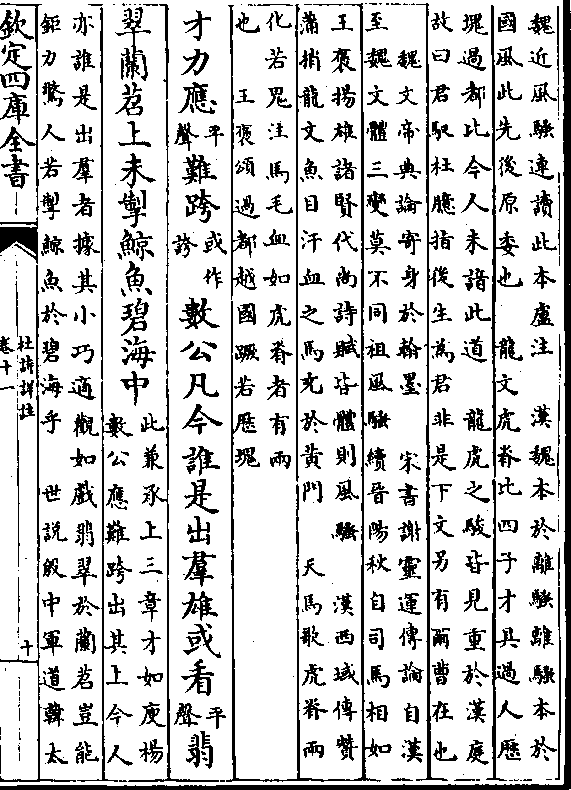 魏近風騷連讀此本盧注　漢魏本於離騷離騷本於
國風此先後原委也　龍文虎脊比四子才具過人歷
塊過都比今人未諳此道　龍虎之駿皆見重於漢庭
故曰君馭杜臆指後生為君非是下文另有爾曹在也
魏文帝典論寄身於翰墨　宋書謝靈運傳論自漢
至魏文體三變莫不同祖風騷續晉陽秋自司馬相如
王褒揚雄諸賢代尚詩賦皆體則風騷　漢西域傳贊
蒲捎龍文魚目汗血之馬充於黃門　天馬歌虎脊兩
化若鬼注馬毛血如虎脊者有兩
也　王褒頌過都越國蹶若歷塊
才力應平聲難跨或作誇數公凡今誰是出羣雄或看平聲翡
翠蘭苕上未掣鯨魚碧海中此兼承上三章才如庾楊
數公應難跨出其上今人
亦誰是出羣者據其小巧適觀如戲翡翠於蘭苕豈能
鉅力驚人若掣鯨魚於碧海乎　世說殷中軍道韓太
欽定四庫全書
杜詩詳註
卷十一
十